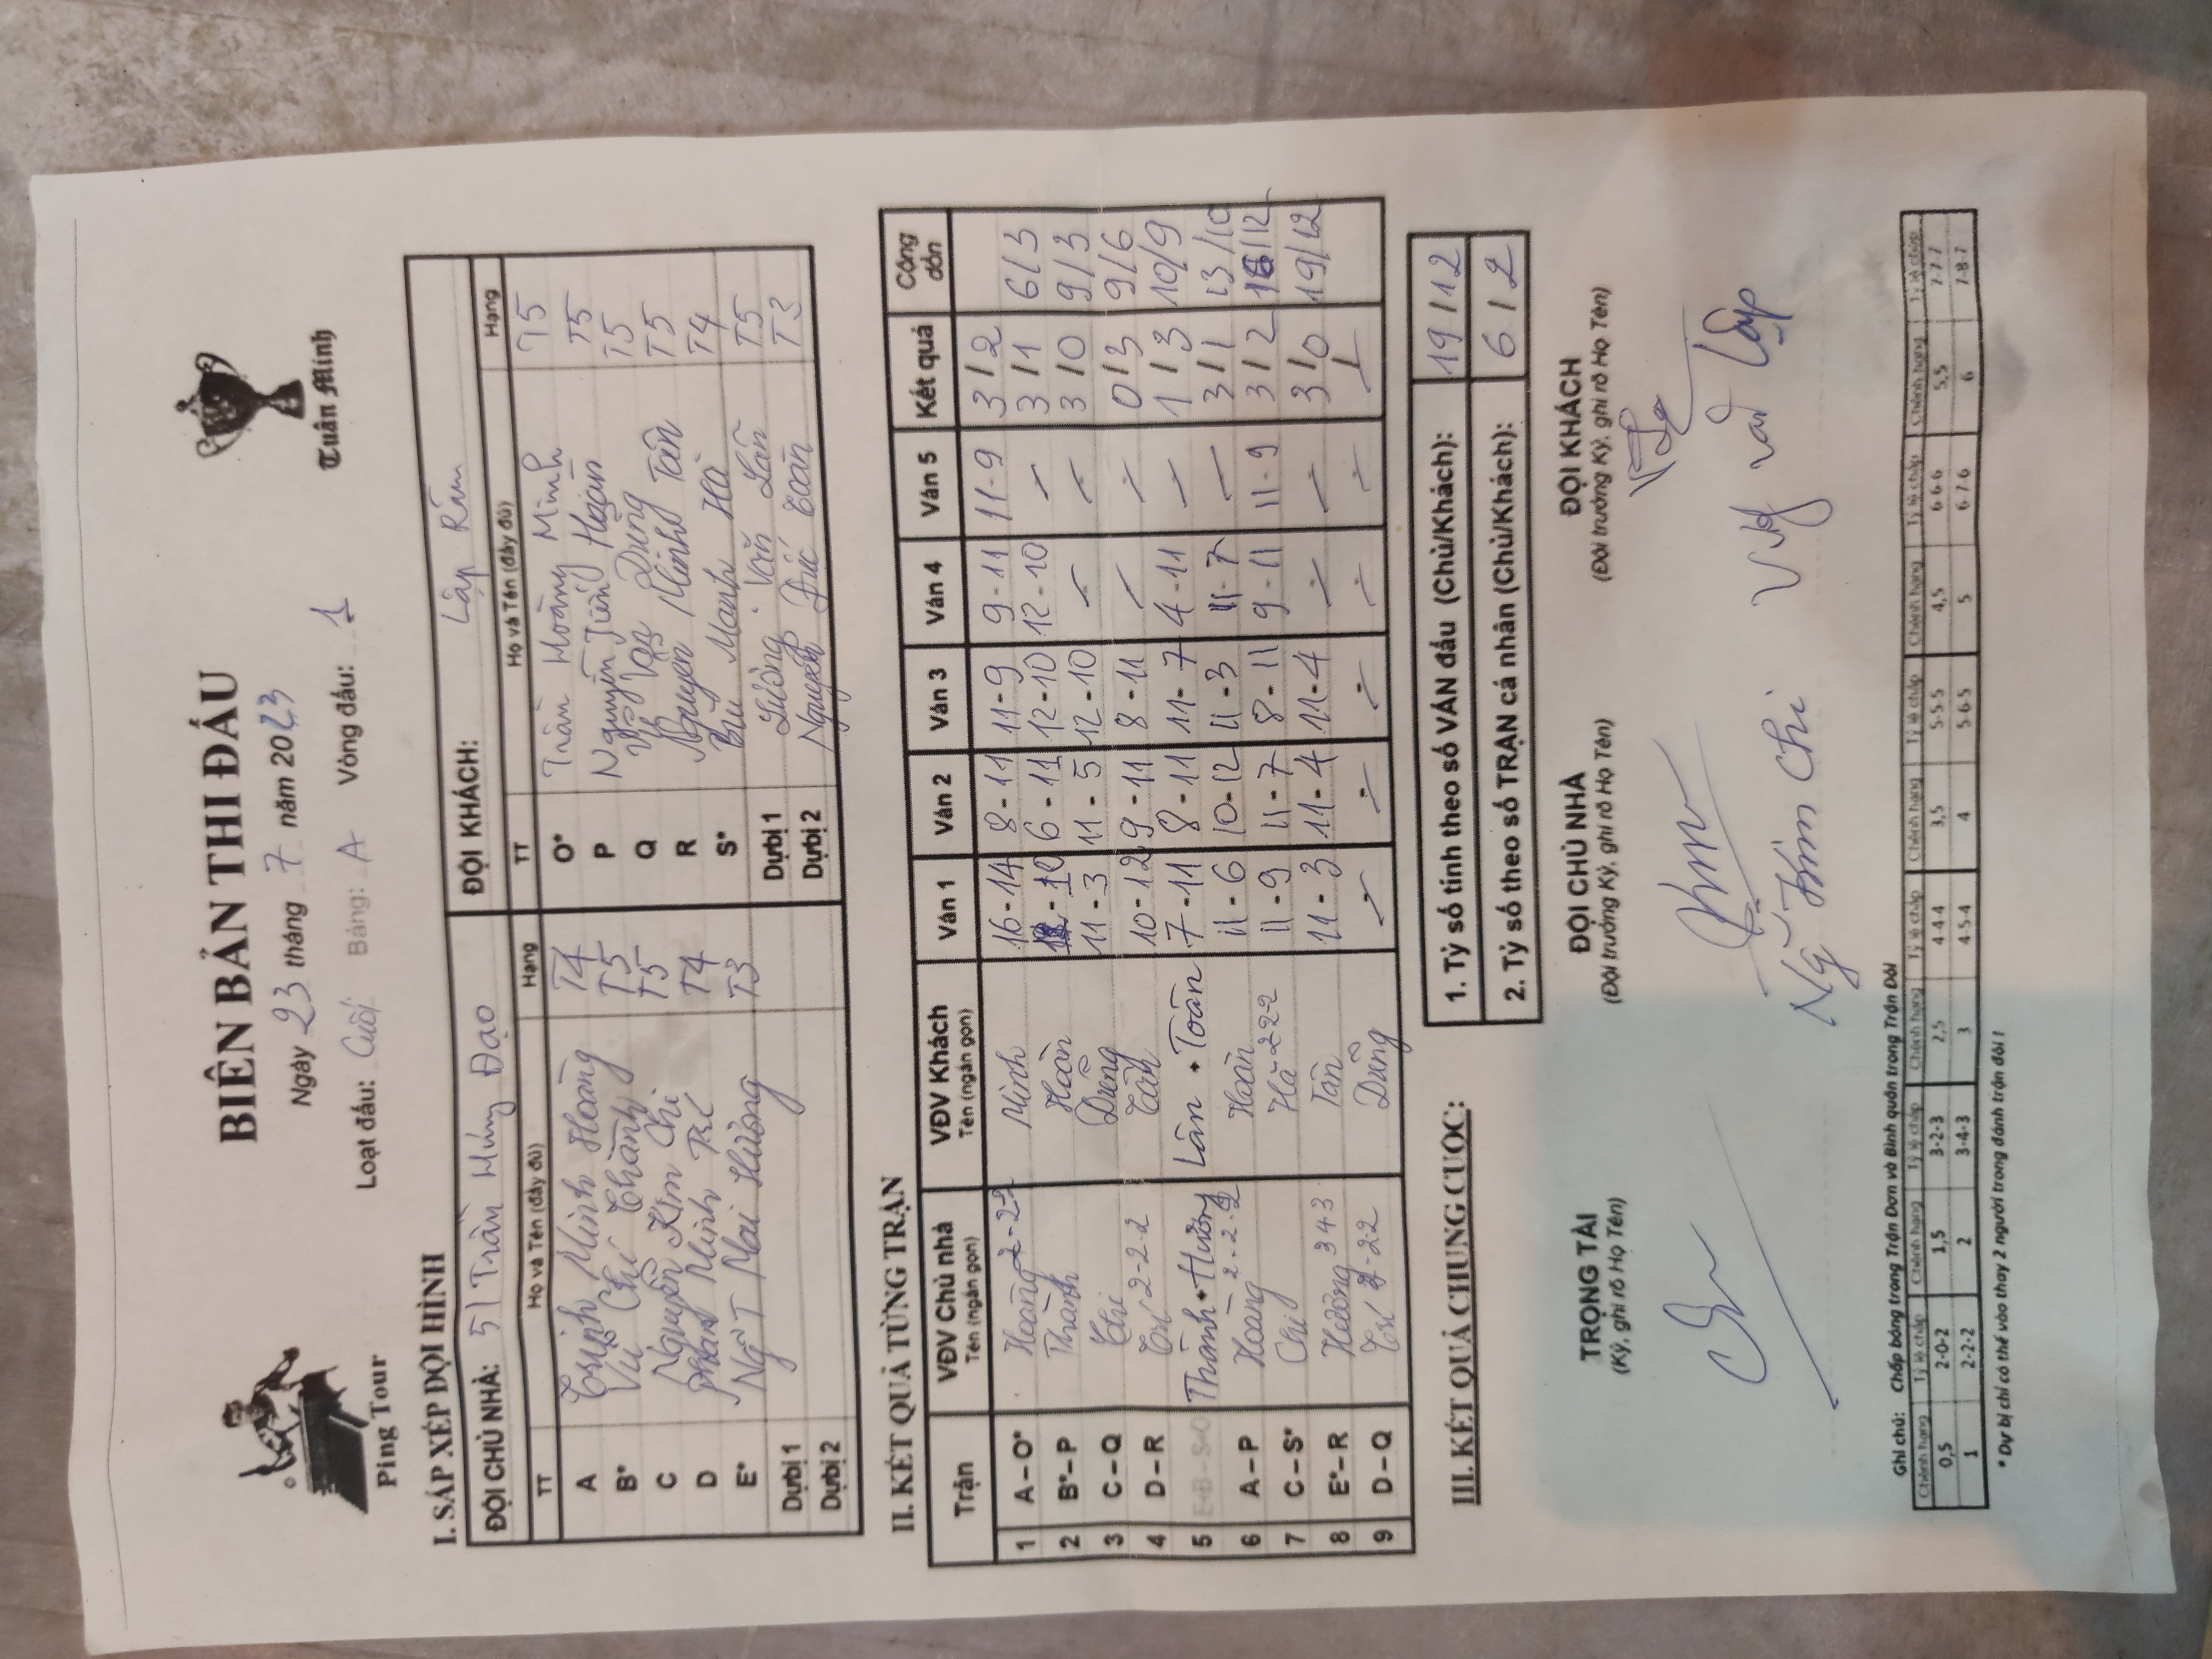 BIÊN BẢN THI ĐẤU
Ping Tour
Tuấn Minh
Ngày 23 tháng 7 năm 2023
Loạt đấu: Cuối Bảng: A Vòng đấu: 1
I. SẮP XẾP ĐỘI HÌNH
ĐỘI CHỦ NHÀ: 51 Trần Hưng Đạo ĐỘI KHÁCH: Lập Râm
TT Họ và Tên (đầy đủ) Hạng TT Họ và Tên (đầy đủ) Hạng
A Trịnh Minh Hoàng T4 O* Trần Hoàng Minh T5
B* Vũ Chí Thành T5 P Nguyễn Tiến Hoàn T5
C Nguyễn Kim Chi T5 Q Dũng T5
D Phan Minh Trí T4 R Nguyễn Minh Tân T5
E* Ng T Mai Hường T3 S* Bùi Mạnh Hà T4
Dự bị 1 Dự bị 1 Lương Văn Lân T5
Dự bị 2 Dự bị 2 Nguyễn Đức Toàn T3
II. KẾT QUẢ TỪNG TRẬN
Trận VĐV Chủ nhà Tên (ngắn gọn) VĐV Khách Tên (ngắn gọn) Ván 1 Ván 2 Ván 3 Ván 4 Ván 5 Kết quả Cộng dồn
1 A – O* Hoàng 2-2-2 Minh 16-14 8-11 11-9 9-11 11-9 3/2
2 B* – P Thành Hoàn - 10 6-11 12-10 12-10 - 3/1 6/3
3 C – Q Chi Dũng 11-3 11-5 12-10 - - 3/0 9/3
4 D – R Trí 2-2-2 Tân 10-12 9-11 8-11 - - 0/3 9/6
5 E+B – S+O Thành + Hường Lân + Toàn 7-11 8-11 11-7 4-11 - 1/3 10/9
6 A – P Hoàng 2-2-2 Hoàn 11-6 10-12 11-3 11-7 - 3/1 13/10
7 C – S* Chi Hà 2-2-2 11-9 11-7 8-11 9-11 11-9 3/2 16/12
8 E* – R Hường 3 4 3 Tân 11-3 11-4 11-4 - - 3/0 19/12
9 D – Q Trí 2-2-2 Dũng - - - - - /
III. KẾT QUẢ CHUNG CUỘC:
1. Tỷ số tính theo số VÁN đấu (Chủ/Khách): 19/12
2. Tỷ số theo số TRẬN cá nhân (Chủ/Khách): 6/2
TRỌNG TÀI ĐỘI CHỦ NHÀ ĐỘI KHÁCH
(Ký, ghi rõ Họ Tên) (Đội trưởng Ký, ghi rõ Họ Tên) (Đội trưởng Ký, ghi rõ Họ Tên)
Ng Kim Chi Văn Lập
Ghi chú: Chấp bóng trong Trận Đơn và Bình quân trong Trận Đôi
Chênh hạng Tỷ lệ chấp Chênh hạng Tỷ lệ chấp Chênh hạng Tỷ lệ chấp Chênh hạng Tỷ lệ chấp Chênh hạng Tỷ lệ chấp Chênh hạng Tỷ lệ chấp
0,5 2-0-2 1,5 3-2-3 2,5 4-4-4 3,5 5-5-5 4,5 6-6-6 5,5 7-7-7
1 2-2-2 2 3-4-3 3 4-5-4 4 5-6-5 5 6-7-6 6 7-8-7
* Dự bị chỉ có thể vào thay 2 người trong đánh trận đôi !